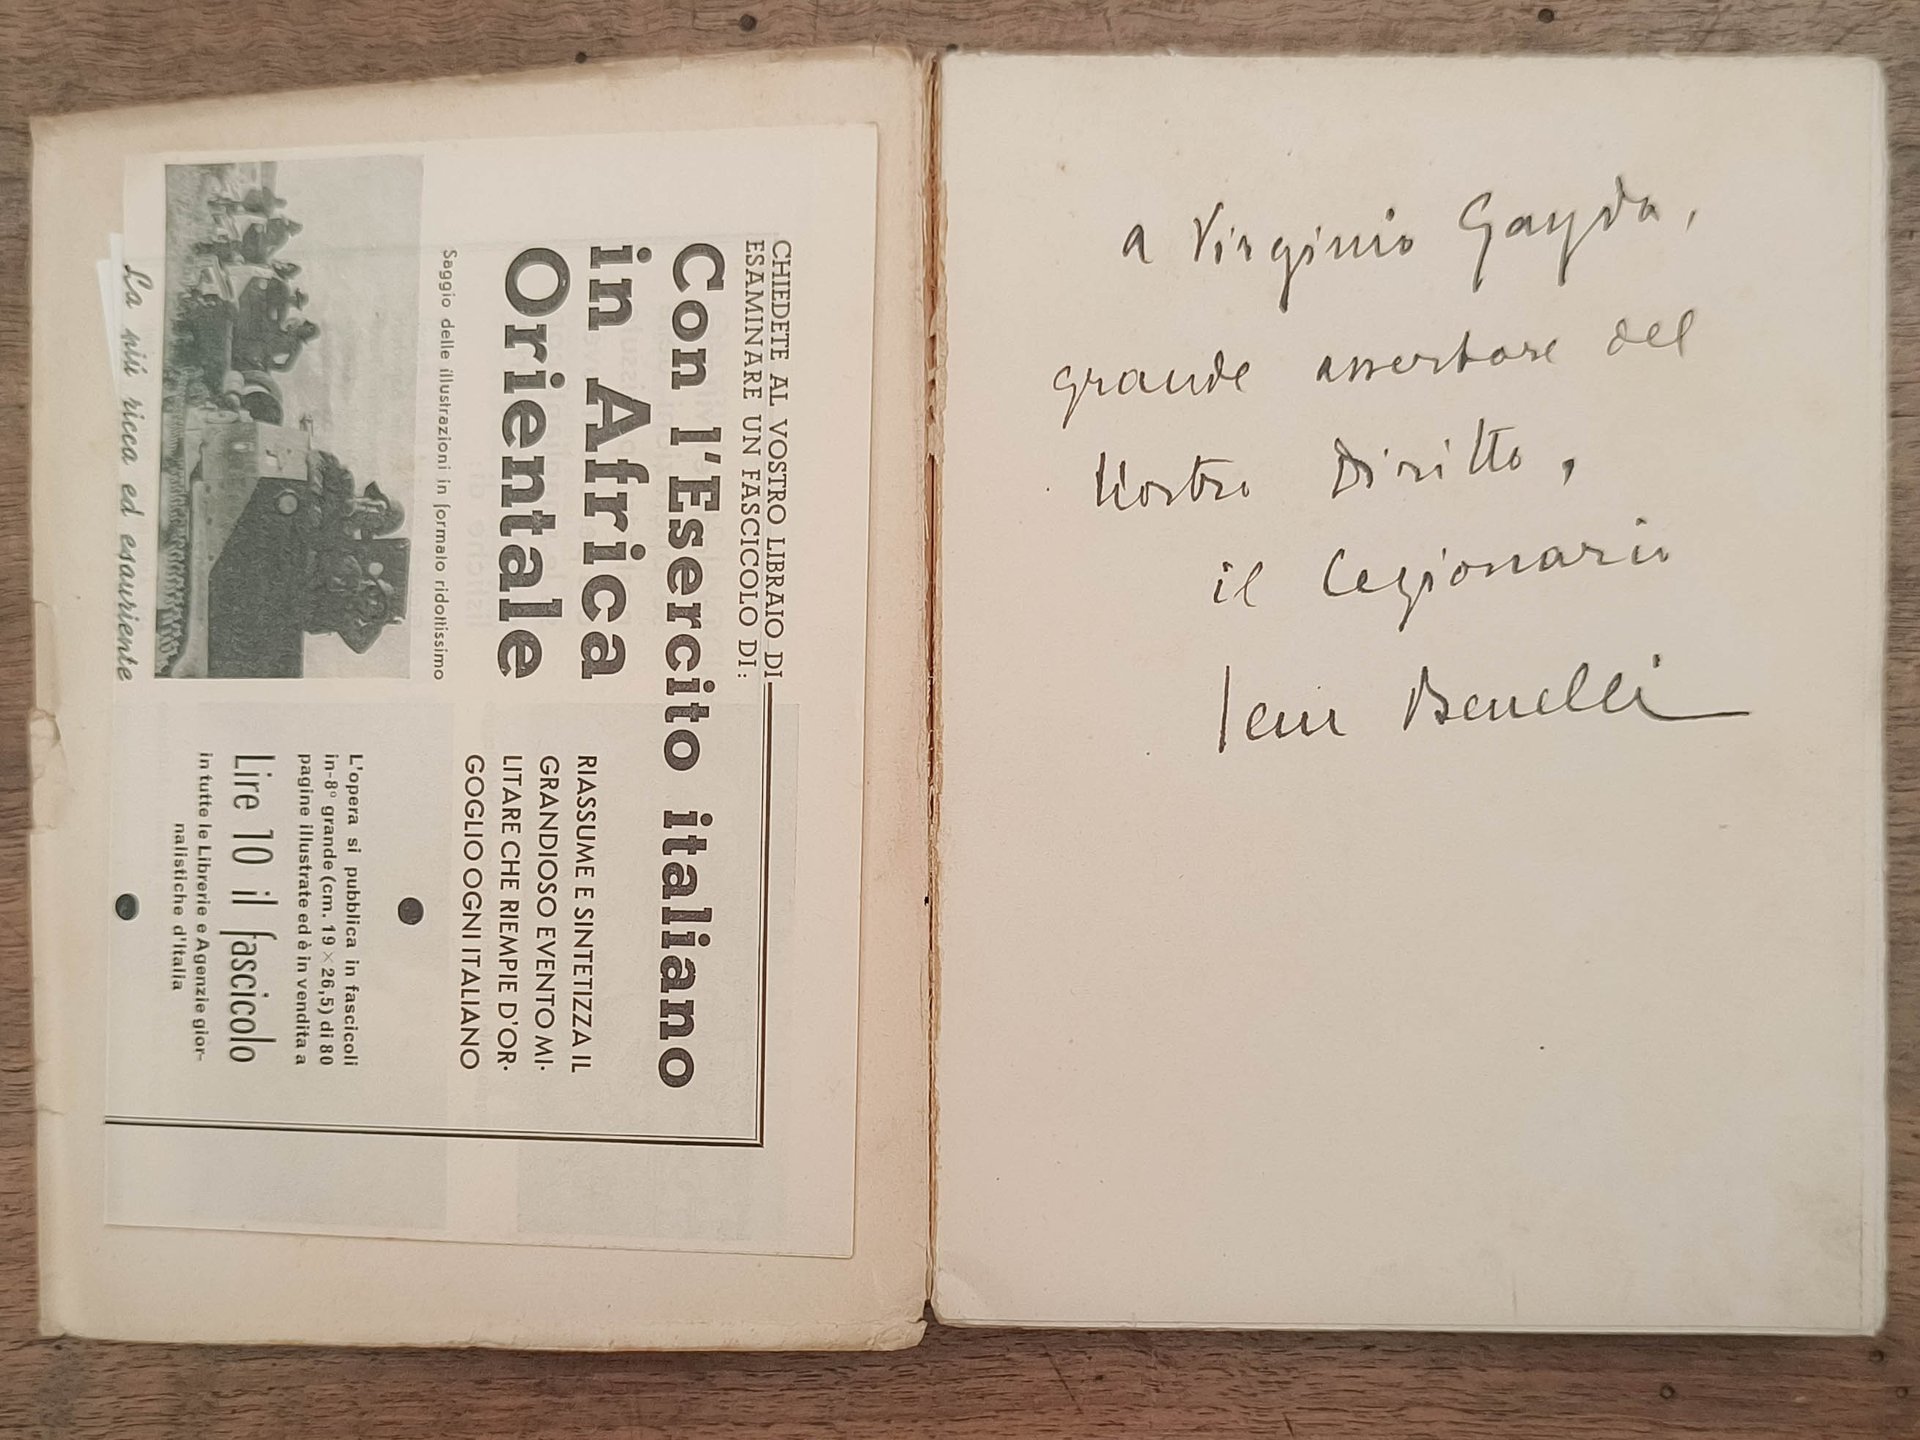 CHIEDETE AL VOSTRO LIBRAIO DI
ESAMINARE UN FASCICOLO DI:
Con l'Esercito italiano
in Africa
Orientale
RIASSUME E SINTETIZZA IL
GRANDIOSO EVENTO MI-
LITARE CHE RIEMPIE D'OR-
GOGLIO OGNI ITALIANO
Saggio delle illustrazioni in formato ridottissimo
La più ricca ed esauriente
L'opera si pubblica in fascicoli
in-8° grande (cm. 19 × 26,5) di 80
pagine illustrate ed è in vendita a
Lire 10 il fascicolo
in tutte le Librerie e Agenzie gior-
nalistiche d'Italia
a Virginio Gayda,
grande assertore del
Nostro Diritto,
il Legionario
Sem Benelli